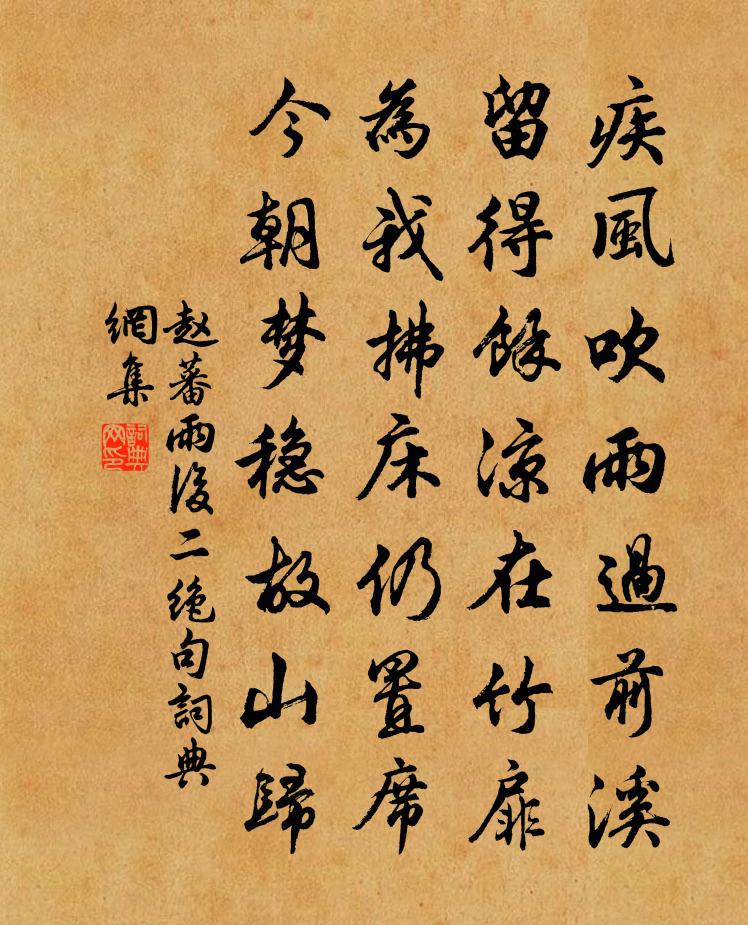 疾風吹雨過前溪
留得餘涼在竹扉
為我拂床仍置席
今朝梦稳故山歸
赵蕃雨後二绝句詞典
網集
詞典网印